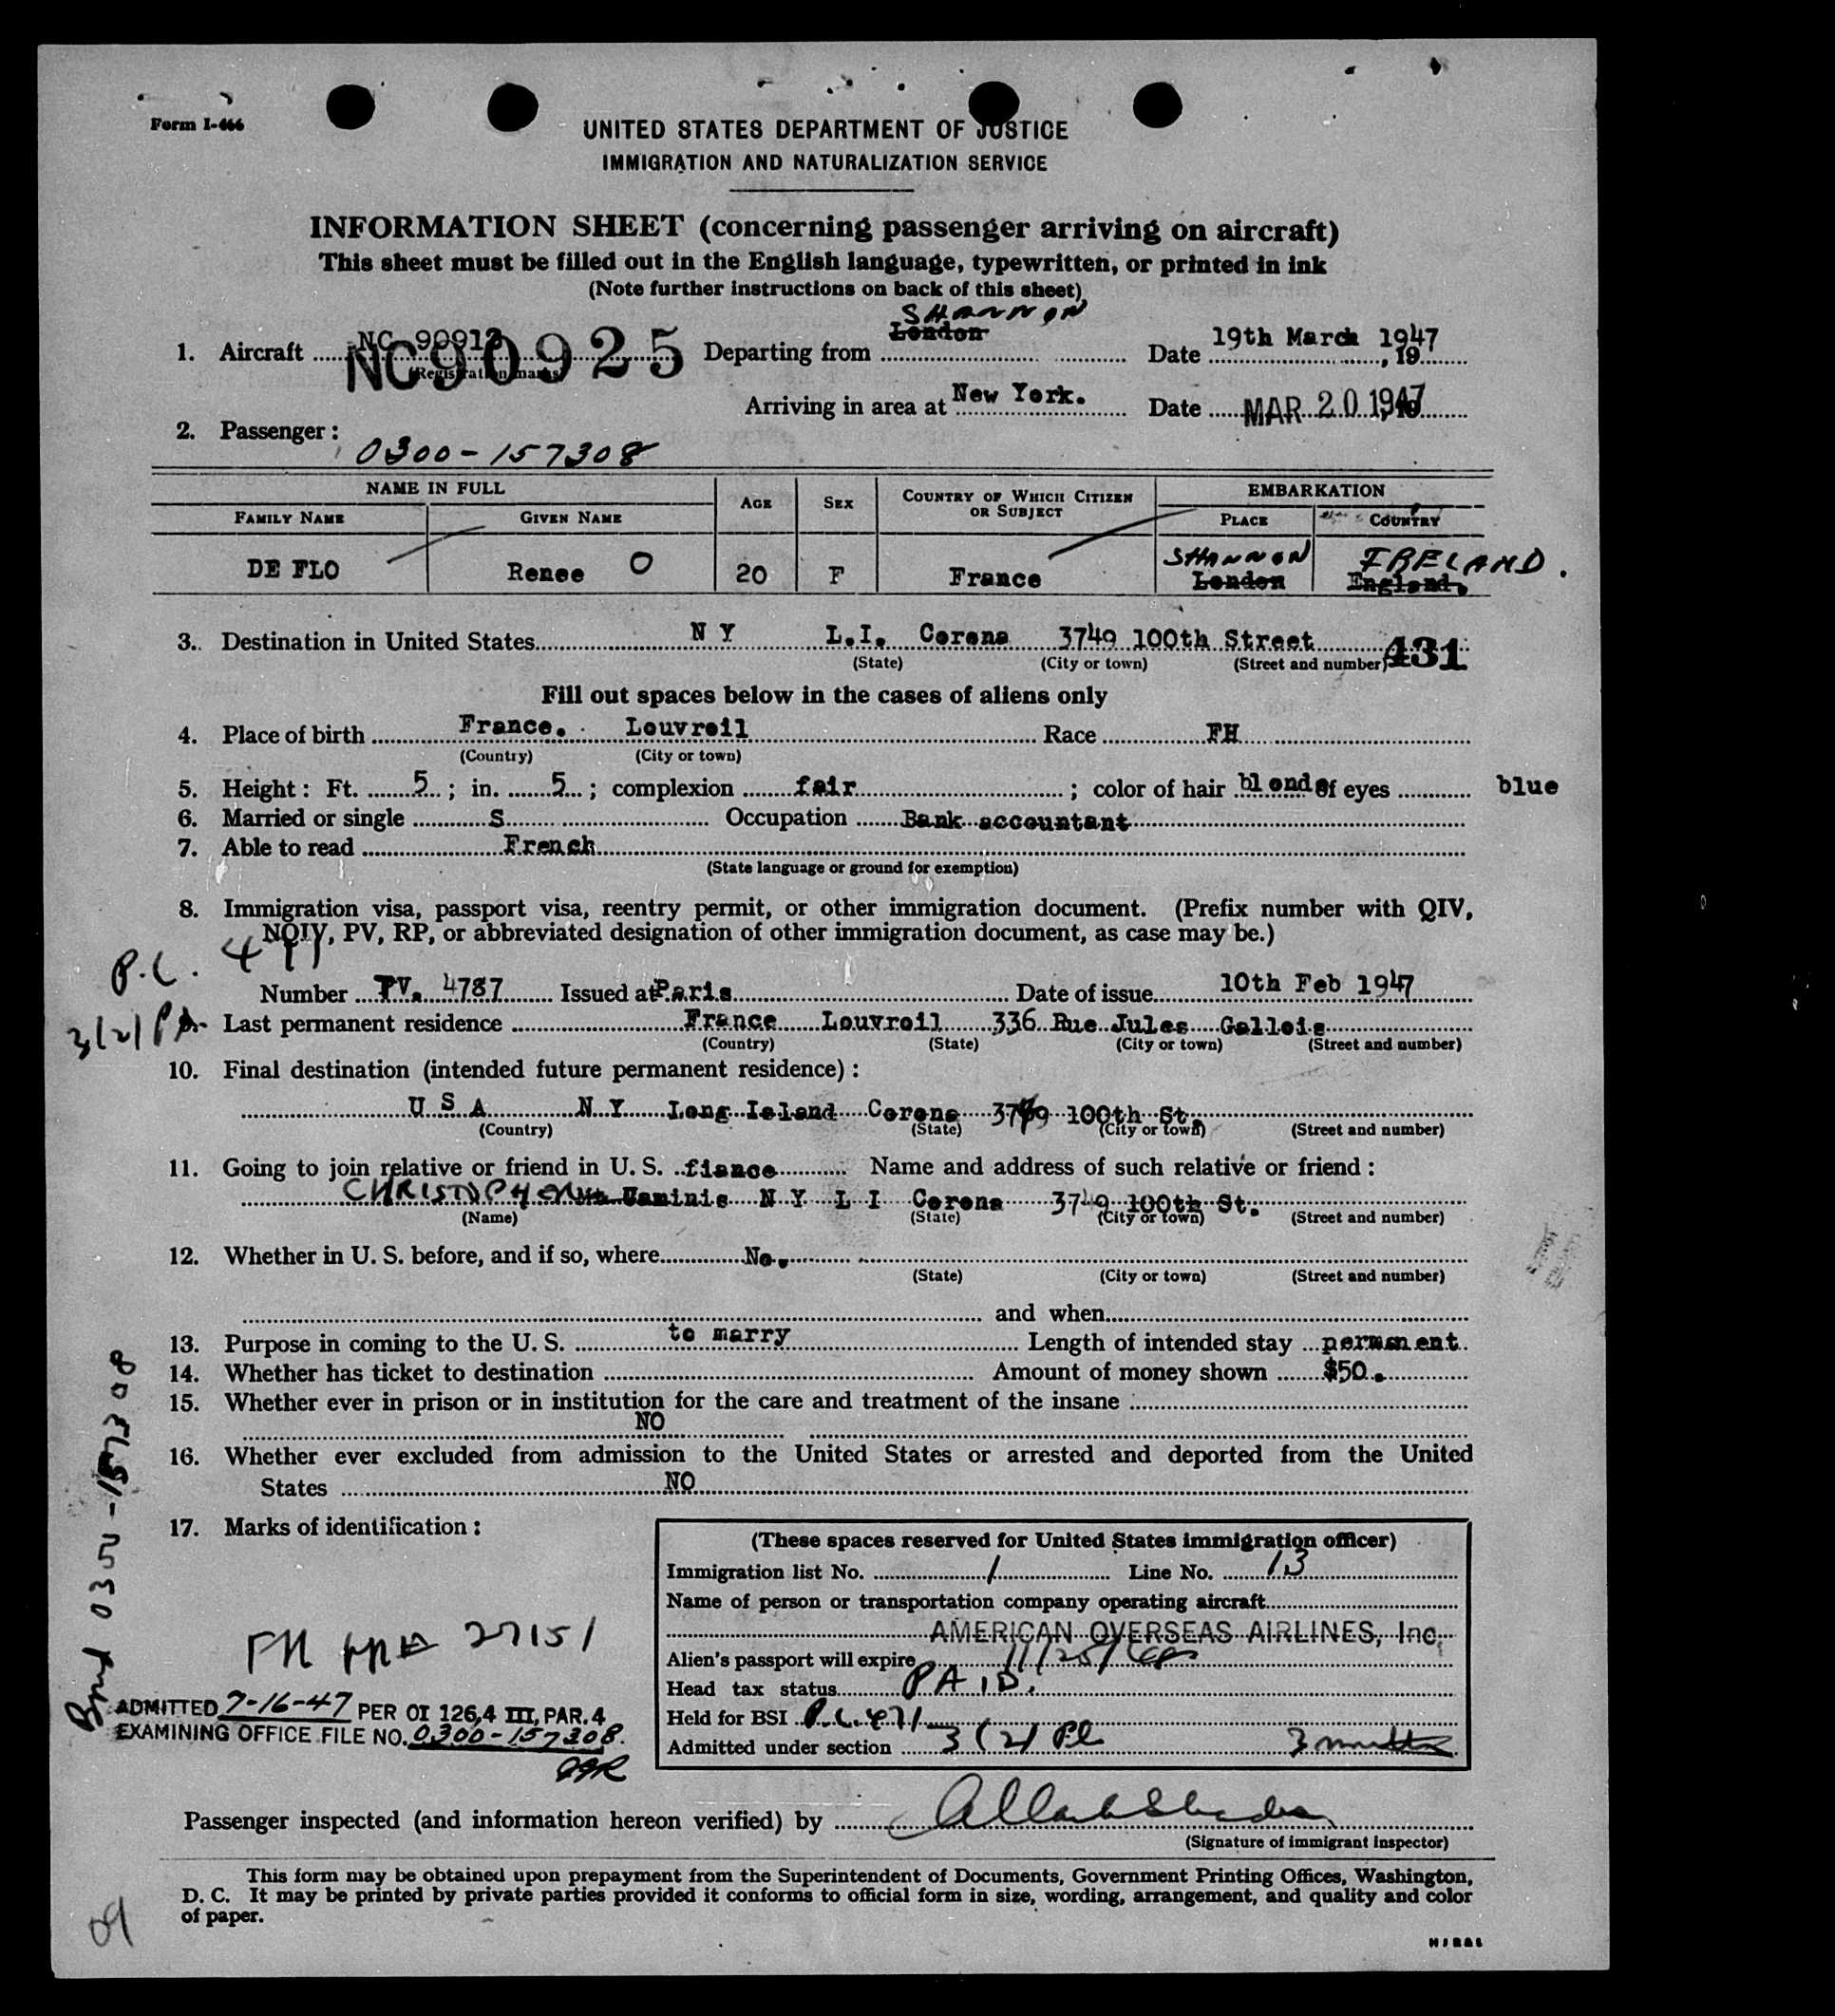 Form I-466
UNITED STATES DEPARTMENT OF JUSTICE
IMMIGRATION AND NATURALIZATION SERVICE
INFORMATION SHEET (concerning passenger arriving on aircraft)
This sheet must be filled out in the English language, typewritten, or printed in ink
(Note further instructions on back of this sheet)
SHANNON
1. Aircraft NC 90913 NC90925 Departing from London Date 19th March 1947, 19
(Registration marks)
Arriving in area at New York. Date MAR 20 1947
2. Passenger: 0300-157308
NAME IN FULL AGE SEX COUNTRY OF WHICH CITIZEN OR SUBJECT EMBARKATION
FAMILY NAME GIVEN NAME PLACE COUNTRY
SHANNON IRELAND.
DE FLO Renee O 20 F France London England.
3. Destination in United States N Y L.I. Corona 3749 100th Street 431
(State) (City or town) (Street and number)
Fill out spaces below in the cases of aliens only
4. Place of birth France. Louvroil Race FH
(Country) (City or town)
5. Height: Ft. 5; in. 5; complexion fair; color of hair blonde of eyes blue
6. Married or single S Occupation Bank accountant
7. Able to read French
(State language or ground for exemption)
8. Immigration visa, passport visa, reentry permit, or other immigration document. (Prefix number with QIV,
NQIV, PV, RP, or abbreviated designation of other immigration document, as case may be.)
P.L. 471
Number PV. 4787 Issued at Paris Date of issue 10th Feb 1947
3(2) PL
Last permanent residence France Louvroil 336 Rue Jules Gallois
(Country) (State) (City or town) (Street and number)
10. Final destination (intended future permanent residence):
U S A N Y Long Island Corona 3749 100th St.
(Country) (State) (City or town) (Street and number)
11. Going to join relative or friend in U. S. fiance Name and address of such relative or friend:
CHRISTOPHER Uaminis N Y L I Corona 3749 100th St.
(Name) (State) (City or town) (Street and number)
12. Whether in U. S. before, and if so, where No.
(State) (City or town) (Street and number)
and when
13. Purpose in coming to the U. S. to marry Length of intended stay permanent
14. Whether has ticket to destination Amount of money shown $50.
15. Whether ever in prison or in institution for the care and treatment of the insane
NO
16. Whether ever excluded from admission to the United States or arrested and deported from the United
States NO
17. Marks of identification:
(These spaces reserved for United States immigration officer)
Immigration list No. 1 Line No. 13
Name of person or transportation company operating aircraft
AMERICAN OVERSEAS AIRLINES, Inc.
Alien's passport will expire 11/25/48
Head tax status PAID.
Held for BSI P.L. 471
Admitted under section 3(2) PL 3 months
27151
ADMITTED 7-16-47 PER OI 126.4 III, PAR. 4
EXAMINING OFFICE FILE NO. 0300-157308.
Bond 0300-157308
Passenger inspected (and information hereon verified) by
(Signature of immigrant inspector)
This form may be obtained upon prepayment from the Superintendent of Documents, Government Printing Offices, Washington,
D. C. It may be printed by private parties provided it conforms to official form in size, wording, arrangement, and quality and color
of paper.